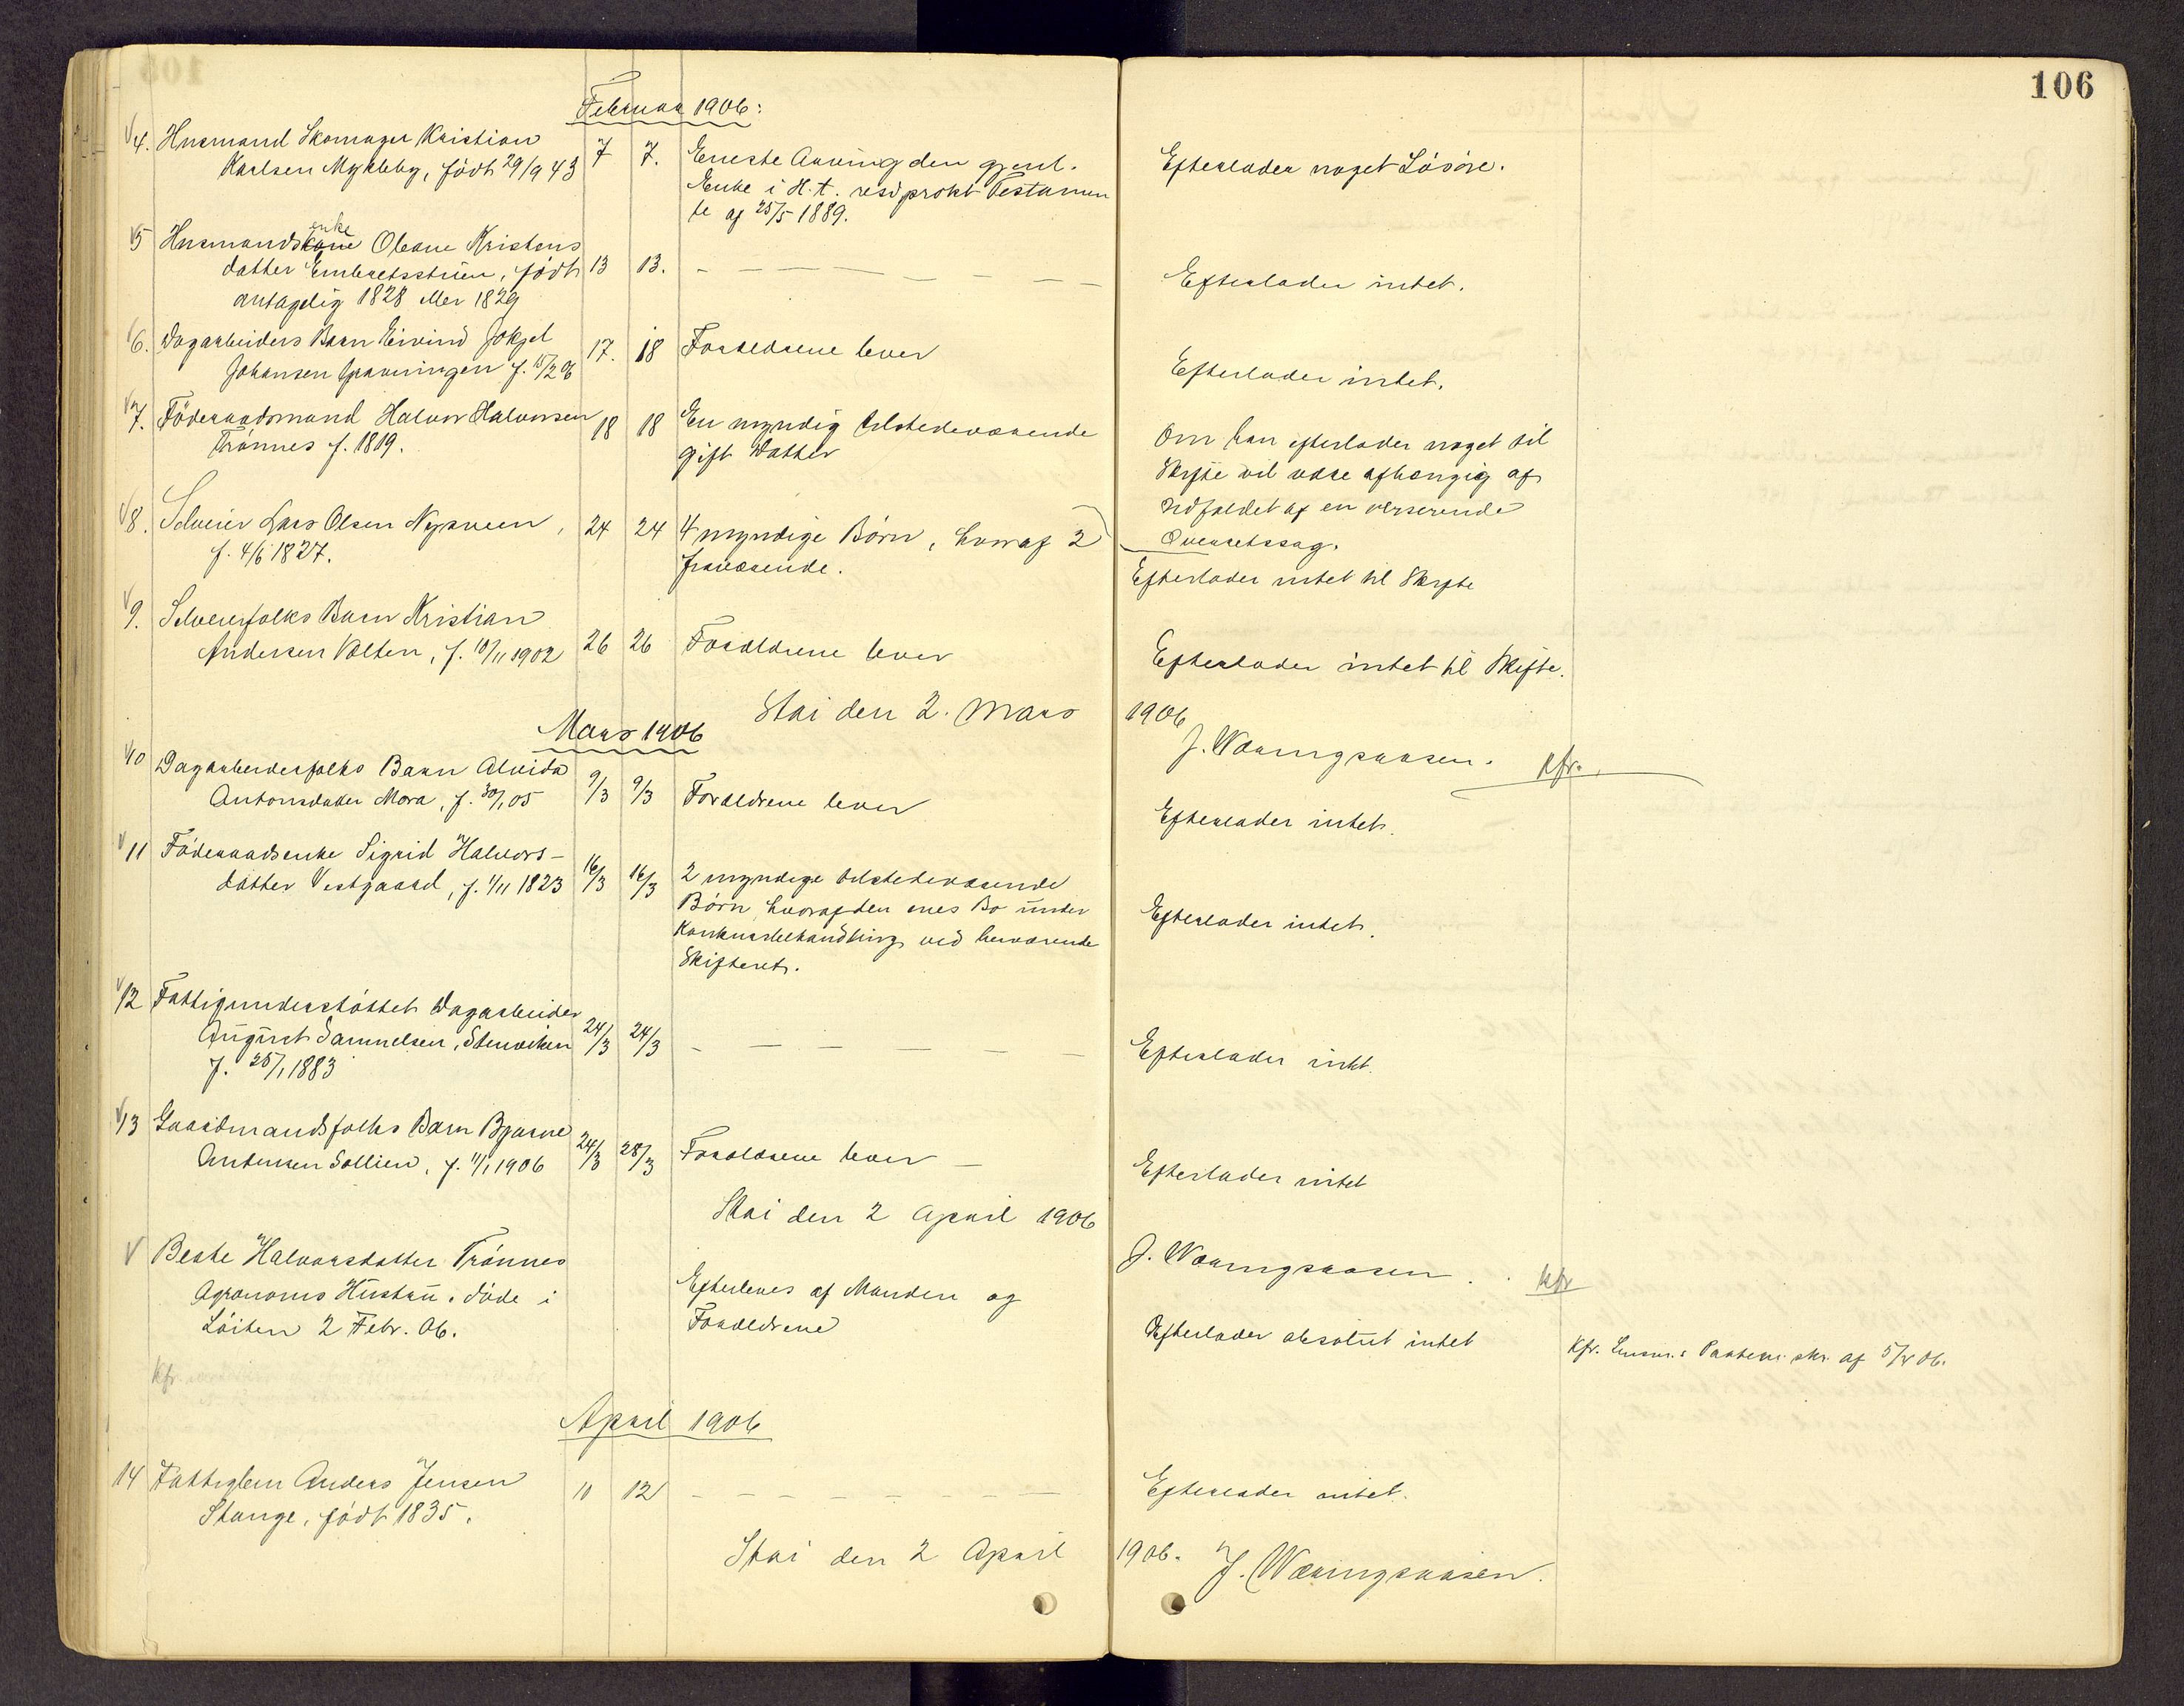 106
Februar 1906:
4. Husmand Skomager Kristian
Karlsen Mykleby, født 29/9 43
7 7.
Eneste Arving den gjenl.
Enke i H. t. resiprokt Testamen
te af 25/5 1889.
Efterlader noget Løsøre.
5 Husmandskone enke Oleane Kristens
datter Embretsstuen, født
antagelig 1828 eller 1829
13 13.
Efterlader intet.
6. Dagarbeiders Barn Eivind
Johansen f. 15/2 06
17. 18
Forældrene lever
Efterlader intet.
7. Føderaadsmand Halvor Halvorsen
Trønnes f. 1819.
18 18
En myndig tilstedeværende
gift Datter
Om han efterlader noget til
Skifte vil være afhængig af
Udfaldet af en verserende
Overretssag.
8. Selveier Lars Olsen Nysveen,
f. 4/6 1827.
24 24
4 myndige Børn, hvoraf 2
fraværende.
Efterlader intet til Skifte
9. Selveierfolks Barn Kristian
Andersen Volten, f. 10/11 1902
26 26
Forældrene lever
Efterlader intet til Skifte.
Stai den 2. Mars 1906
J. Wæringsaasen. kfr.
Mars 1906
10 Dagarbeiderfolks Barn Alvida
Antonsdatter Mora, f. 30/1 05
9/3 9/3
Forældrene lever
Efterlader intet.
11 Føderaadsenke Sigrid Halvors-
datter Vestgaard, f. 1/11 1823
16/3 16/3
2 myndige tilstedeværende
Børn, hvoraf den enes Bo under
Konkursbehandling ved herværende
Skifteret.
Efterlader intet.
12 Fattigunderstøttet Dagarbeider
August Samuelsen, Stenviken
f. 25/1 1883
24/3 24/3
Efterlader intet.
13 Gaardmandsfolks Barn Bjarne
Antonsen Sollien, f. 11/1 1906
24/3 28/3
Forældrene lever
Efterlader intet
Stai den 2 April 1906
J. Wæringsaasen. kfr
Beste Halvorsdatter Trønnes
Agronoms Hustru. døde i
Løiten 2 Febr. 06.
Efterleves af Manden og
Forældrene
Efterlader absolut intet
Kfr. Lensm.s skr. af 5/4 06.
kfr.
April 1906
14 Fattiglem Anders Jensen
Stange, født 1835.
11 12
Efterlader intet.
Stai den 2 April 1906. J. Wæringsaasen.